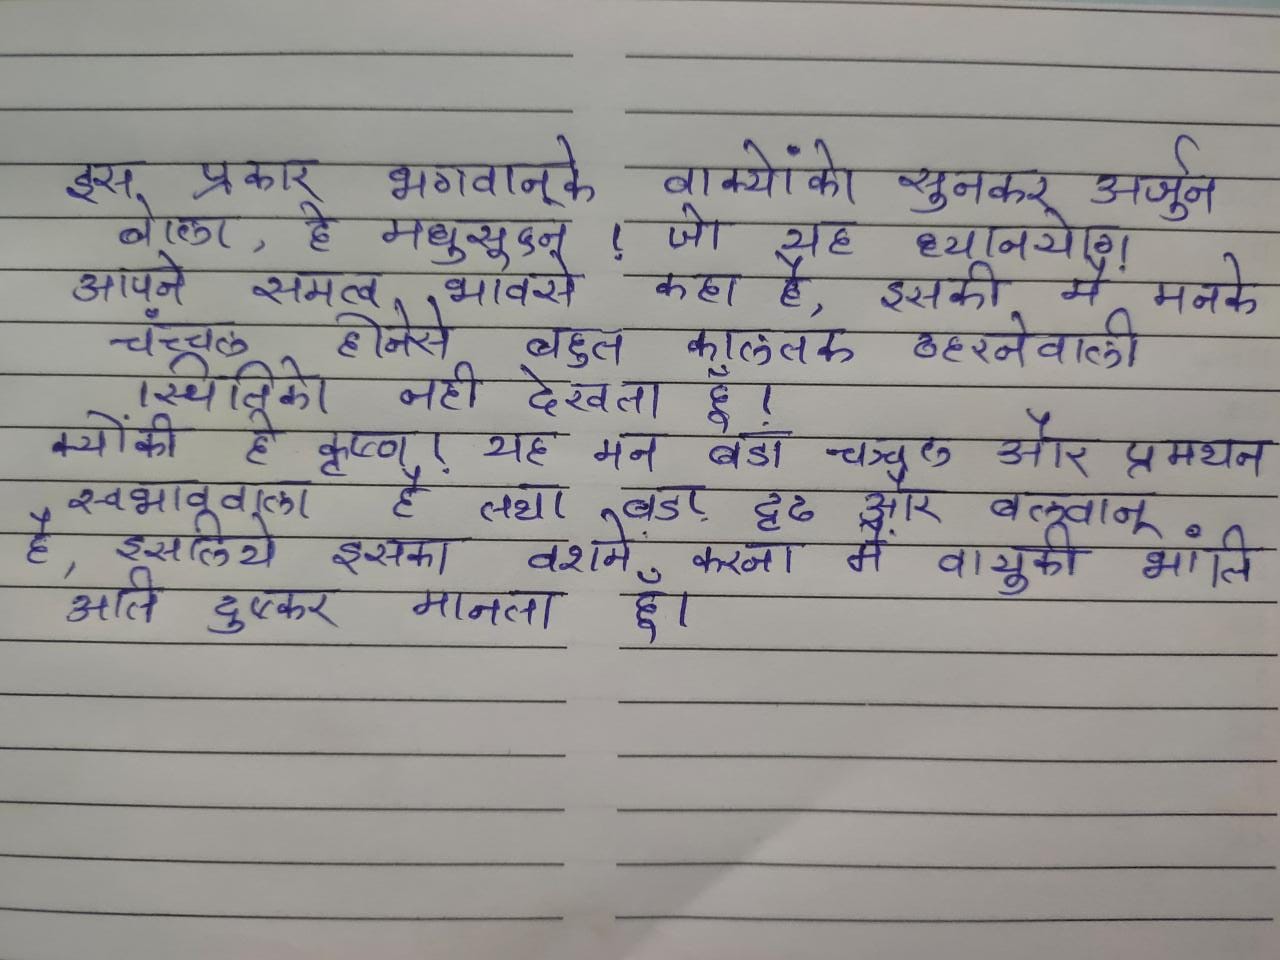 इस प्रकार भगवान्के वाक्योंको सुनकर अर्जुन
बोला, हे मधुसूदन ! जो यह ध्यानयोग
आपने समत्व भावसे कहा है, इसकी मैं मनके
चंच्चल होनेसे बहुत कालतक ठहरनेवाली
स्थितिको नही देखता हूँ।
क्योंकी हे कृष्ण! यह मन बडा चञ्चल और प्रमथन
स्वभाववाला है तथा बडा दृढ और बलवान्
है, इसलिये इसका वशमें करना मैं वायुकी भांति
अति दुष्कर मानता हूँ।